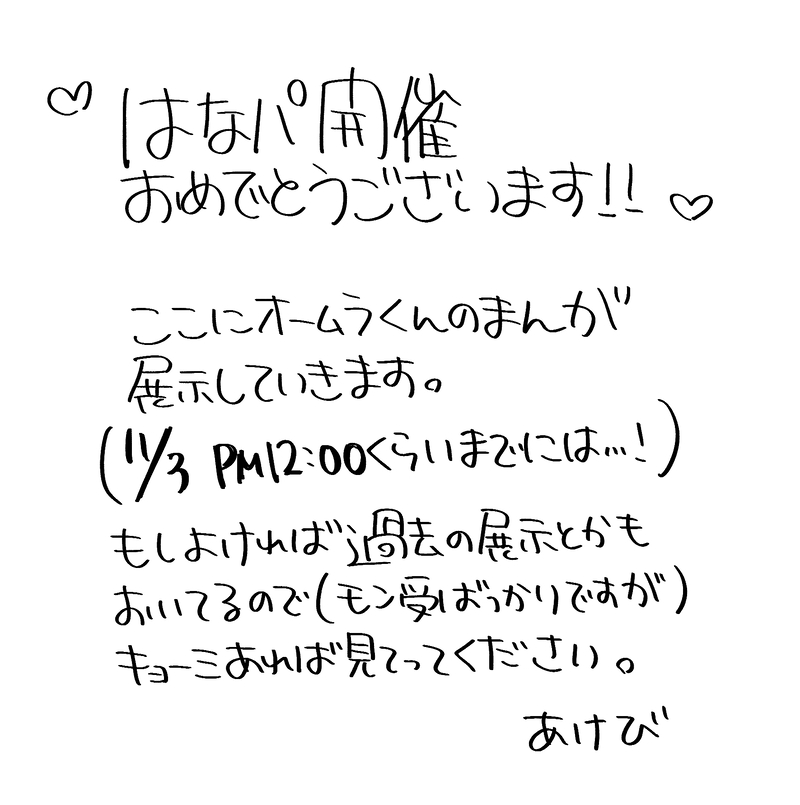 ♡ はなパ開催
おめでとうございます!! ♡
ここにオームラくんのまんが
展示していきます。
(11/3 PM12:00くらいまでには…!)
もしよければ過去の展示とかも
おいてるので(モン受ばっかりですが)
キョーミあれば見てってください。
あけび